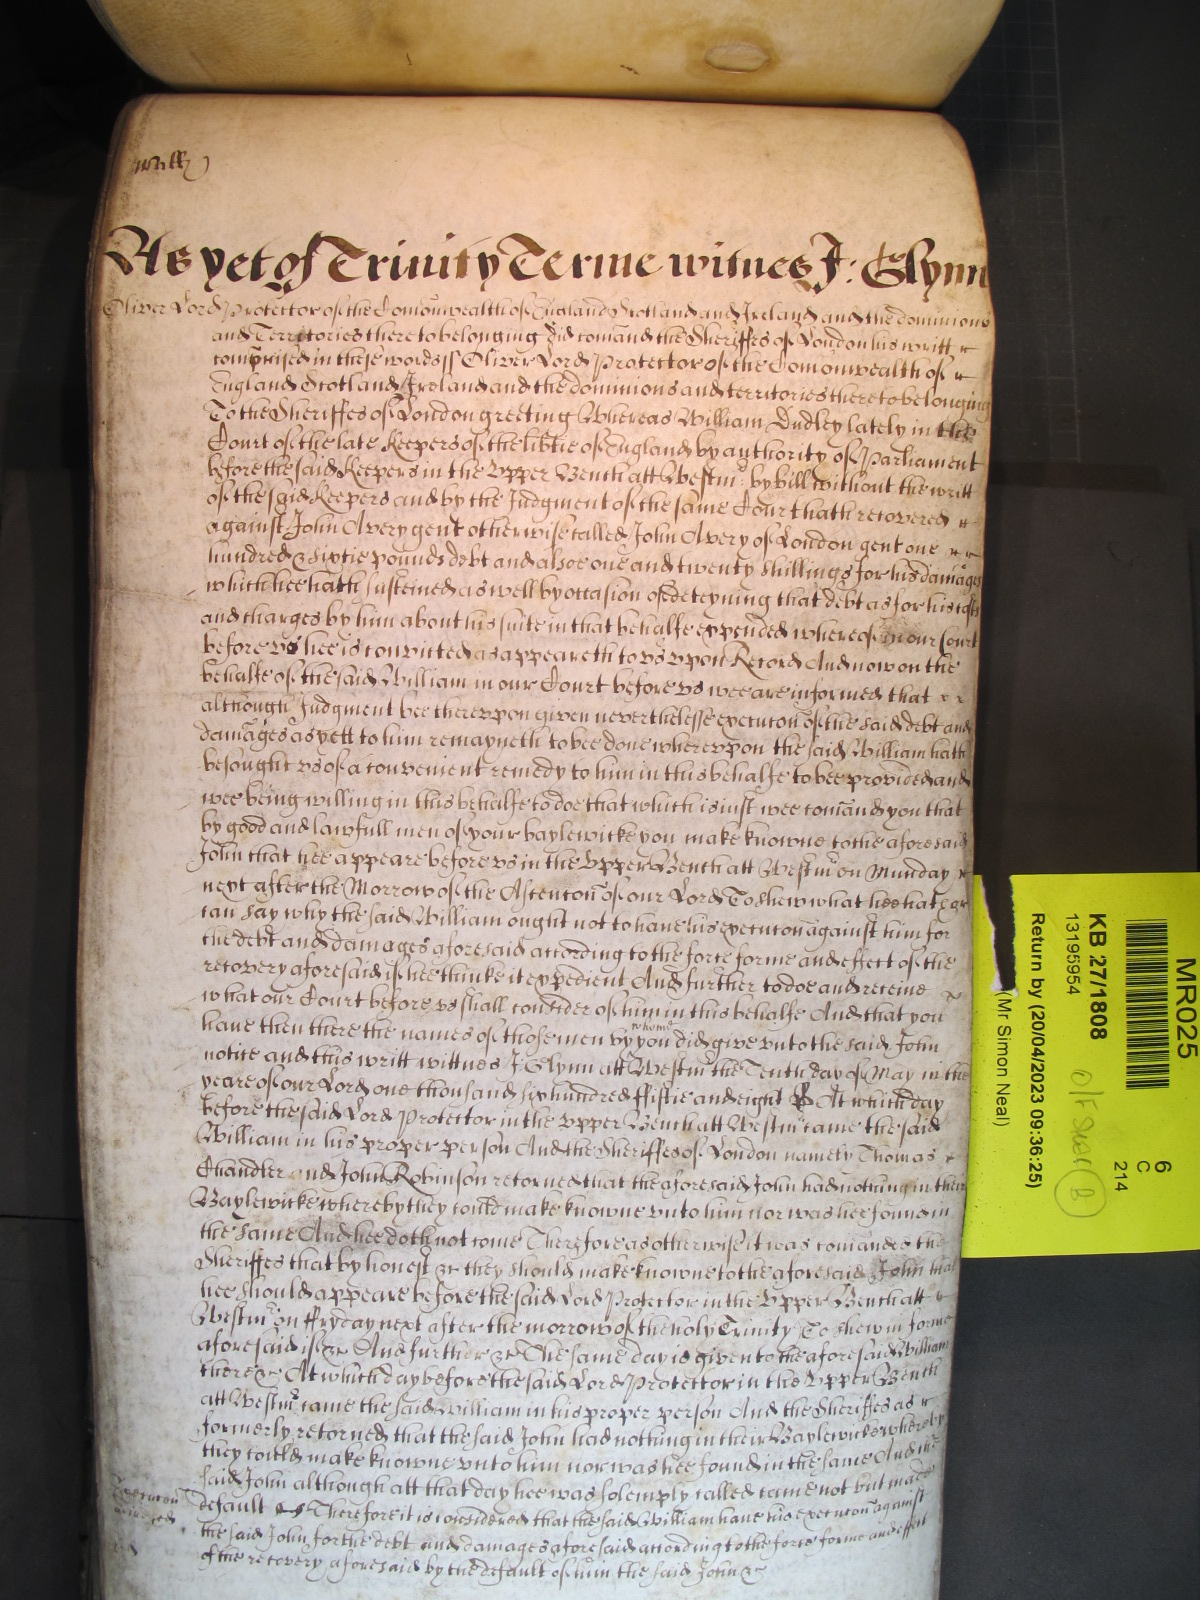 As yet of Trinity Terme witnes J: Glynn
Oliver Lord Protector of the Comonwealth of England Scotland and Ireland and the dominions
and Territories thereto belonging did comand the Sheriffes of London his writt
comprised in these words ss Oliver Lord Protector of the Comonwealth of
England Scotland Ireland and the dominions and territories thereto belonging
To the Sheriffes of London greeting Whereas William Dudley lately in the
Court of the late Keepers of the libtie of England by authority of Parliament
before the said Keepers in the Upper Bench att Westmr by bill without the writt
of the said Keepers and by the Judgment of the same Court hath recovered
against John Avery gent otherwise called John Avery of London gent one
hundred & sixtie pounds debt and alsoe one and twenty shillings for his damages
which hee hath susteined as well by occasion of deteyning that debt as for his costs
and charges by him about his suite in that behalfe expended whereof in our Court
before vs hee is convicted as appeareth to vs vpon Record And now on the
behalfe of the said William in our Court before vs wee are informed that
although Judgment bee therevpon given neverthelesse execucon of the said debt and
damages as yett to him remayneth to bee done wherevpon the said William hath
besought vs of a convenient remedy to him in this behalfe to bee provided and
wee being willing in this behalfe to doe that which is iust wee comand you that
by good and lawfull men of your baylewicke you make knowne to the aforesaid
John that hee appeare before vs in the Upper Bench att Westmr on Munday
next after the Morrow of the Ascencon of our Lord To shew what hee hath or
can say why the said William ought not to have his execucon against him for
the debt and damages aforesaid according to the force forme and effect of the
recovery aforesaid if hee thinke it expedient And further to doe and receive
what our Court before vs shall consider of him in this behalfe And that you
have then there the names of those men by whome you did give vnto the said John
notice and this writt wittnes J: Glynn att Westmr the Tenth day of May in the
yeare of our Lord one thousand six hundred fiftie and eight At which day
before the said Lord Protector in the Upper Bench att Westmr came the said
William in his proper person And the Sheriffes of London namely Thomas
Chandler and John Robinson retorned that the aforesaid John had nothing in their
Baylewicke whereby they could make knowne vnto him nor was hee found in
the same And hee doth not come Therefore as otherwise it was comanded the
Sheriffes that by honest &c they should make knowne to the aforesaid John that
hee should appeare before the said Lord Protector in the Upper Bench att
Westmr on ffryday next after the morrow of the holy Trinity To shew in forme
aforesaid if &c And further &c The same day is given to the aforesaid William
there &c At which day before the said Lord Protector in the Upper Bench
att Westmr came the said William in his proper person And the Sheriffes as
formerly retorned that the said John had nothing in their Baylewicke whereby
they could make knowne vnto him nor was hee found in the same And the
said John although att that day hee was solemply called came not but made
default Therefore it is considered that the said William have his execucon against
the said John for the debt and damages aforesaid according to the force forme and effect
of the recovery aforesaid by the default of him the said John &c
MR025
6
C
214
KB 27/1808
13195954
Return by (20/04/2023 09:36:25)
(Mr Simon Neal)
B